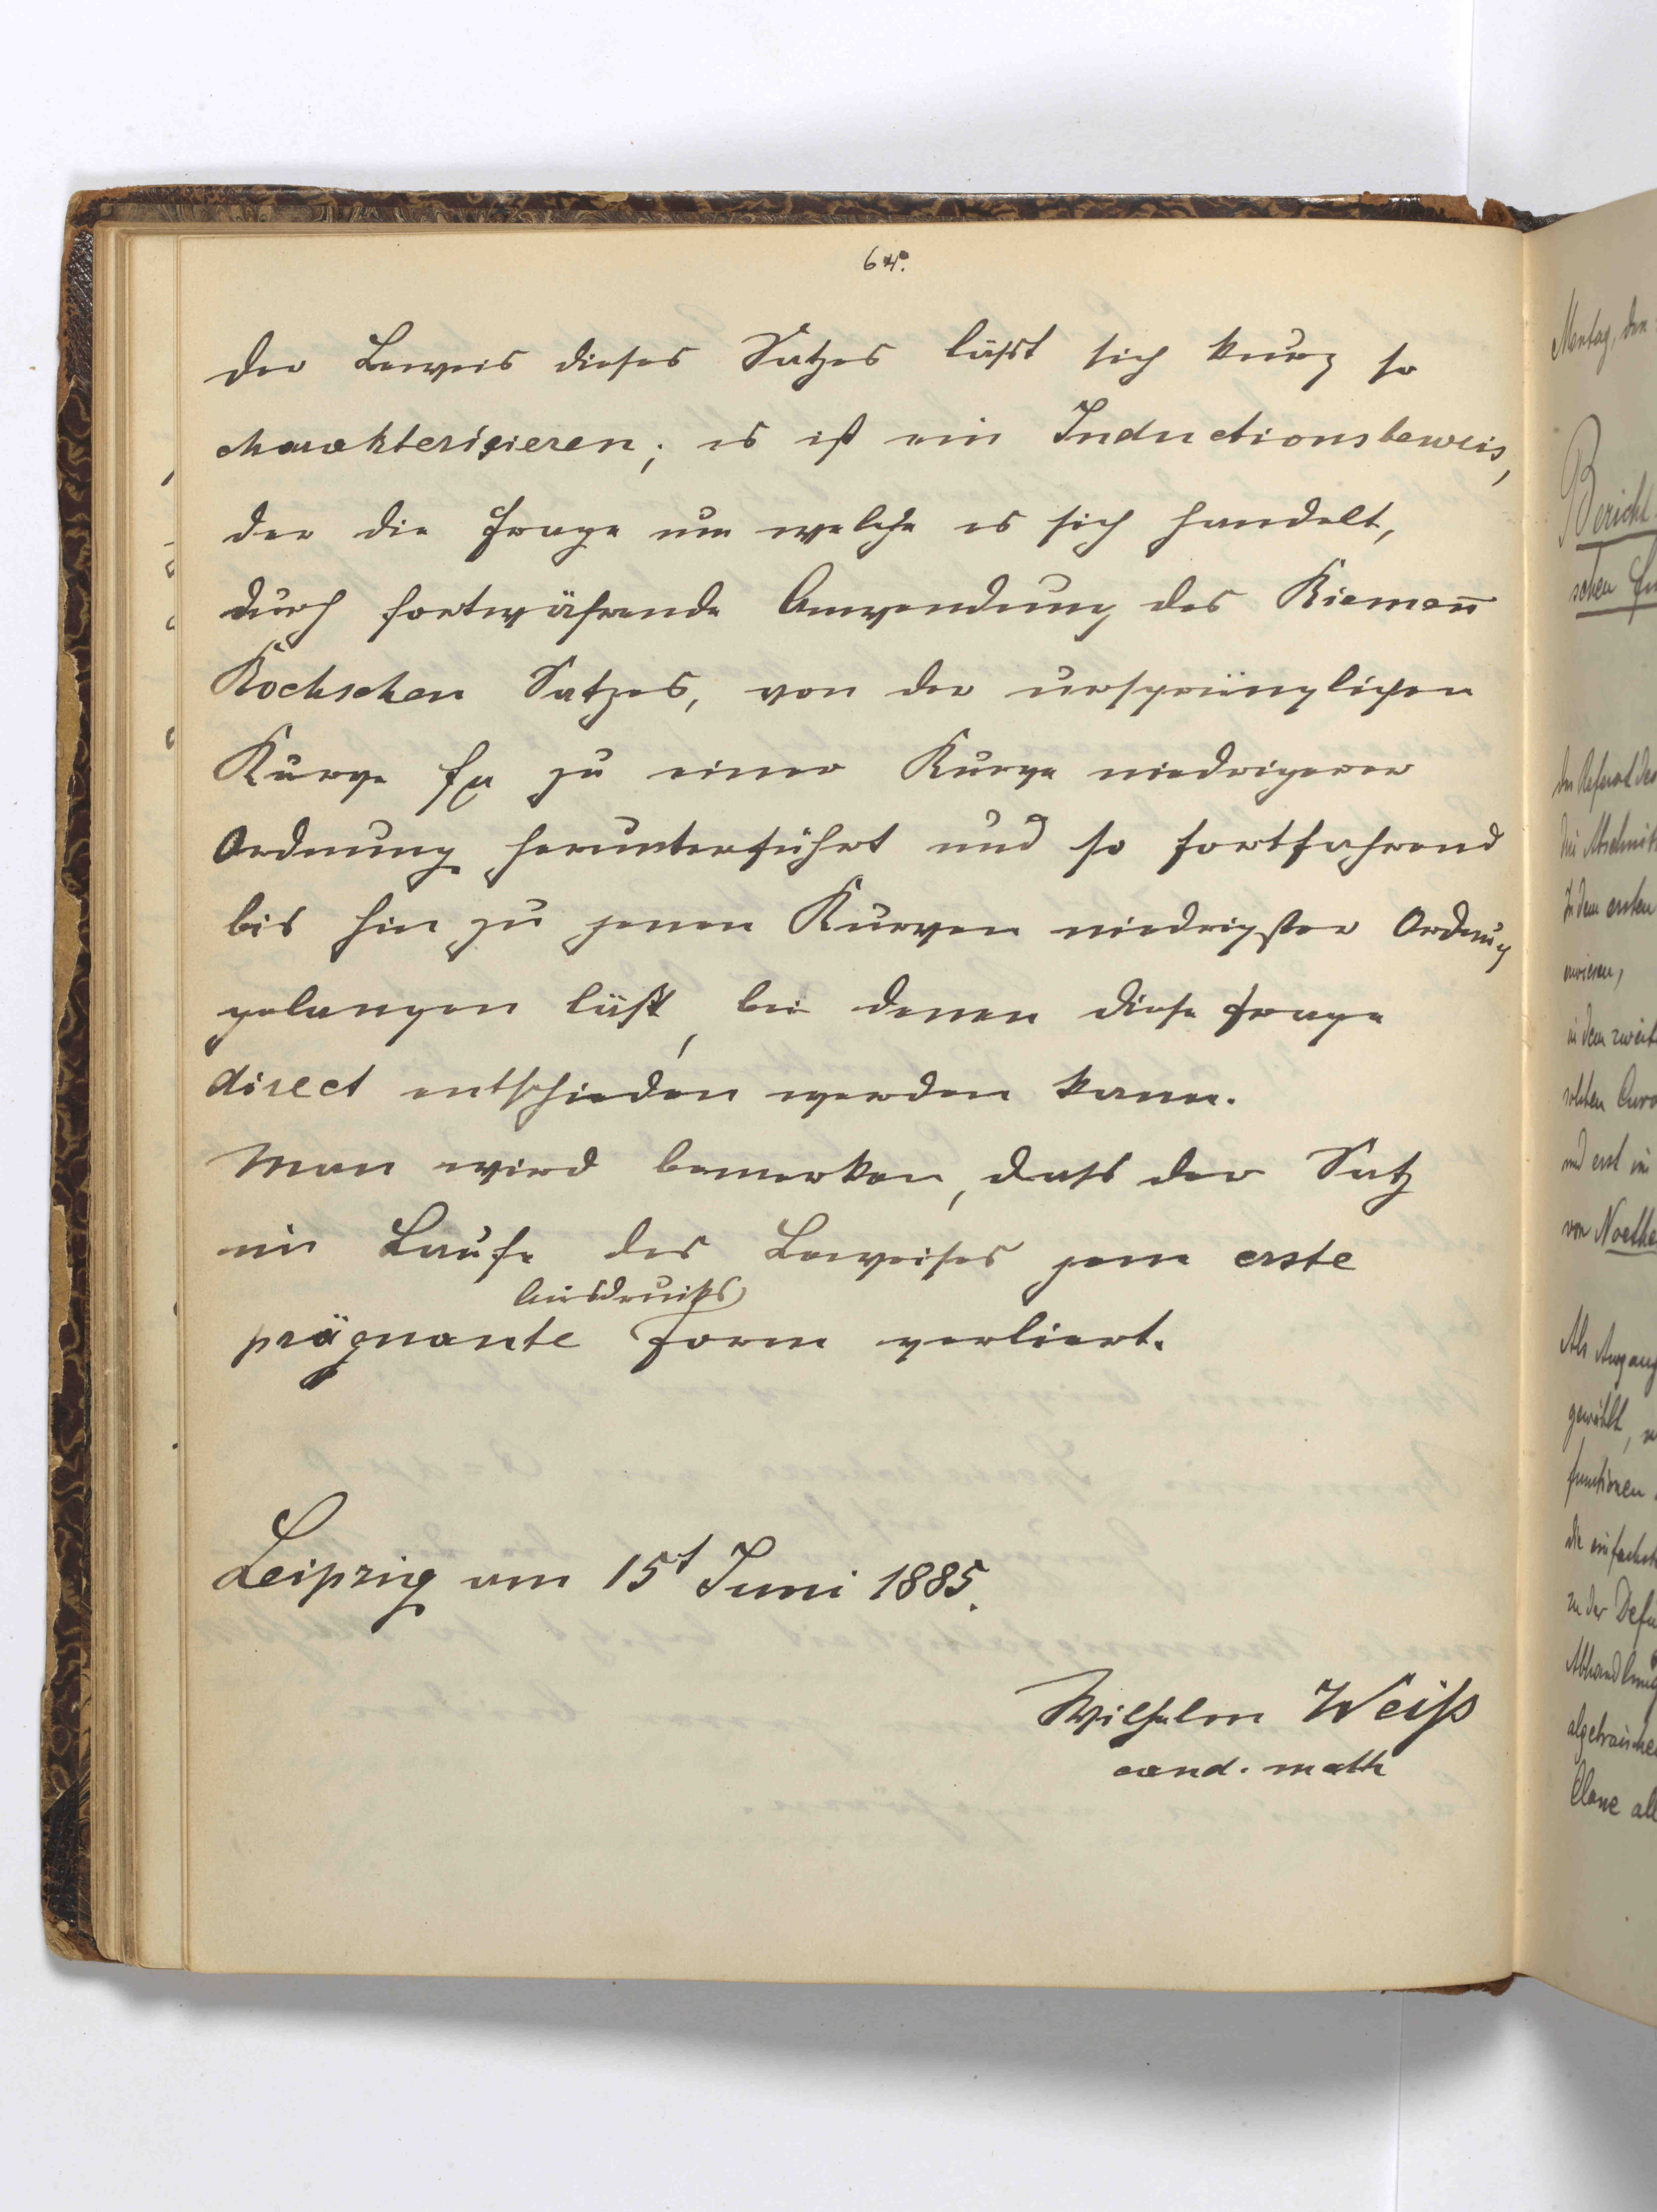 64.
Der Beweis dieses Satzes lässt sich kurz so
charakterisieren; es ist ein Inductionsbeweis,
der die Frage um welche es sich handelt,
durch fortwährende Anwendung des Riemann
Rochschen Satzes, von der ursprünglichen
Kurve fμ zu einer Kurve niedrigerer
Ordnung herunterführt und so fortfahrend
bis hin zu jenen Kurven niedrigster Ordnung
gelangen läßt, bei denen diese Frage
direct entschieden werden kann.
Man wird bemerken, dass der Satz
im Laufe des Beweises jene erste
Ausdrucks
prägnante Form verliert.
Leipzig am 15t Juni 1885.
Wilhelm Weiß
cand. math
Montag, den
Bericht
schen
Das Referat des
die Abschnitt
In dem ersten
in dem zweit
und erst im
von Noethe
gewählt,
functionen
die einfachst
zu der Defin
Abhandlung